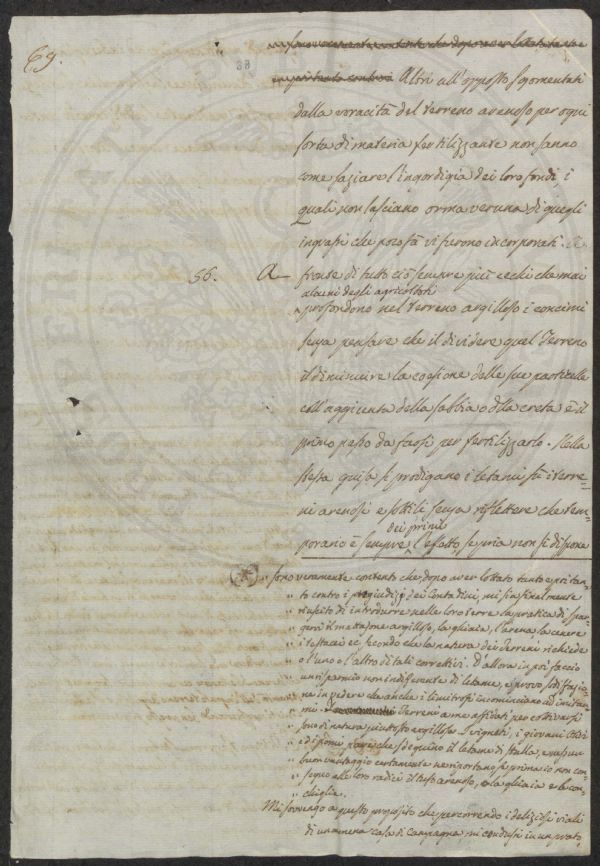 69.
38
Altri all'opposto sgomentati
dalla voracità del terreno arenoso per ogni
sorta di materia fertilizzante non sanno
come saziare l'ingordigia dei loro fondi, i
quali non lasciano orma veruna di quegli
ingrassi che poc'anzi vi furono incorporati.
56. A fronte di tutto ciò sempre più che mai
alcuni degli agricoltori
profondono nel terreno argilloso i concimi
senza pensare che il dividere quel Terreno
il diminuire la coesione delle sue particelle
coll'aggiunta della sabbia o della creta è il
primo passo da farsi per fertilizzarlo. Nella
stessa guisa si prodigano i letami su i terre-
ni arenosi e sottili senza riflettere che tem-
dei primi
porario è sempre l'effetto, se pria non si dispone
" sono veramente contento che, dopo aver lottato tanto e per tan-
" to contro i pregiudizj dei Contadini, mi sia finalmente
" riuscito di introdurre nelle loro terre la pratica di spar-
" gervi il mattajone argilloso, la ghiaia, l'arena la cenere
" i testacei ec. secondo che la natura dei Terreni richiede
" o l'uno o l'altro di tali correttivi. D'allora in poi faccio
" un risparmio non indifferente di letame, e provo sodisfazio-
" ne in vedere che anche i limitrofi incominciano ad imitar-
" mi. Terreni a me affidati per coltivarsi
" sono di natura piuttosto argillosa. I vigneti, i giovani
" e di pomi pare che sdegnino il letame di stalla, e nessun
" buon vantaggio certamente ne riportano se prima io non con-
" segno alle loro radici il testo arenoso, o la ghiaia o le con-
" chiglie.
Mi sovvengo a questo proposito che percorrendo i deliziosi viali
di un'amena casa di Campagna mi condussi in un prato,